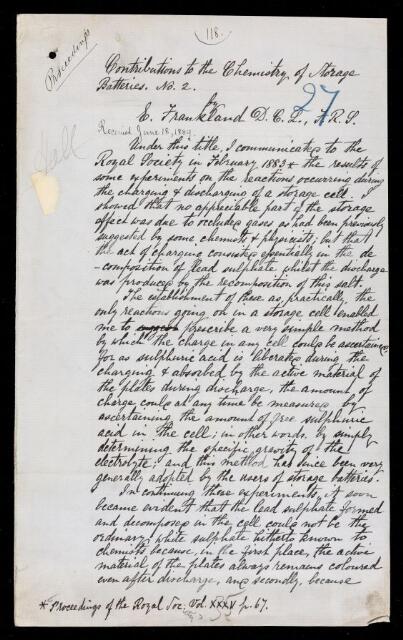 118.
Proceedings
Contributions to the Chemistry of Storage
Batteries. No. 2.
by
27
E. Frankland D.C.L., F.R.S.
Received June 18, 1889.
Under this title, I communicated to the
Royal Society in February, 1883 * the results of
some experiments on the reactions occurring during
the charging & discharging of a storage cell. I
showed that no appreciable part of the storage
effect was due to occluded gases, as had been previously
suggested by some chemists & physicists; but that
the act of charging consisted essentially in the de
-composition of lead sulphate, whilst the discharge
was produced by the recomposition of this salt.
The establishment of these as, practically, the
only reactions going on in a storage cell enabled
me to prescribe a very simple method
by which the charge in any cell could be ascertained;
for as sulphuric acid is liberated during the
charging & absorbed by the active material of
the plates during discharge, the amount of
charge could at any time be measured by
ascertaining the amount of free sulphuric
acid in the cell; in other words by simply
determining the specific gravity of the
electrolyte; and this method has since been very
generally adopted by the users of storage batteries.
In continuing these experiments, it soon
became evident that the lead sulphate formed
and decomposed in the cell could not be the
ordinary white sulphate hitherto known to
chemists because, in the first place, the active
material of the plates always remains coloured
even after discharge, and secondly, because
* Proceedings of the Royal Soc. Vol. XXXV p. 67.
35